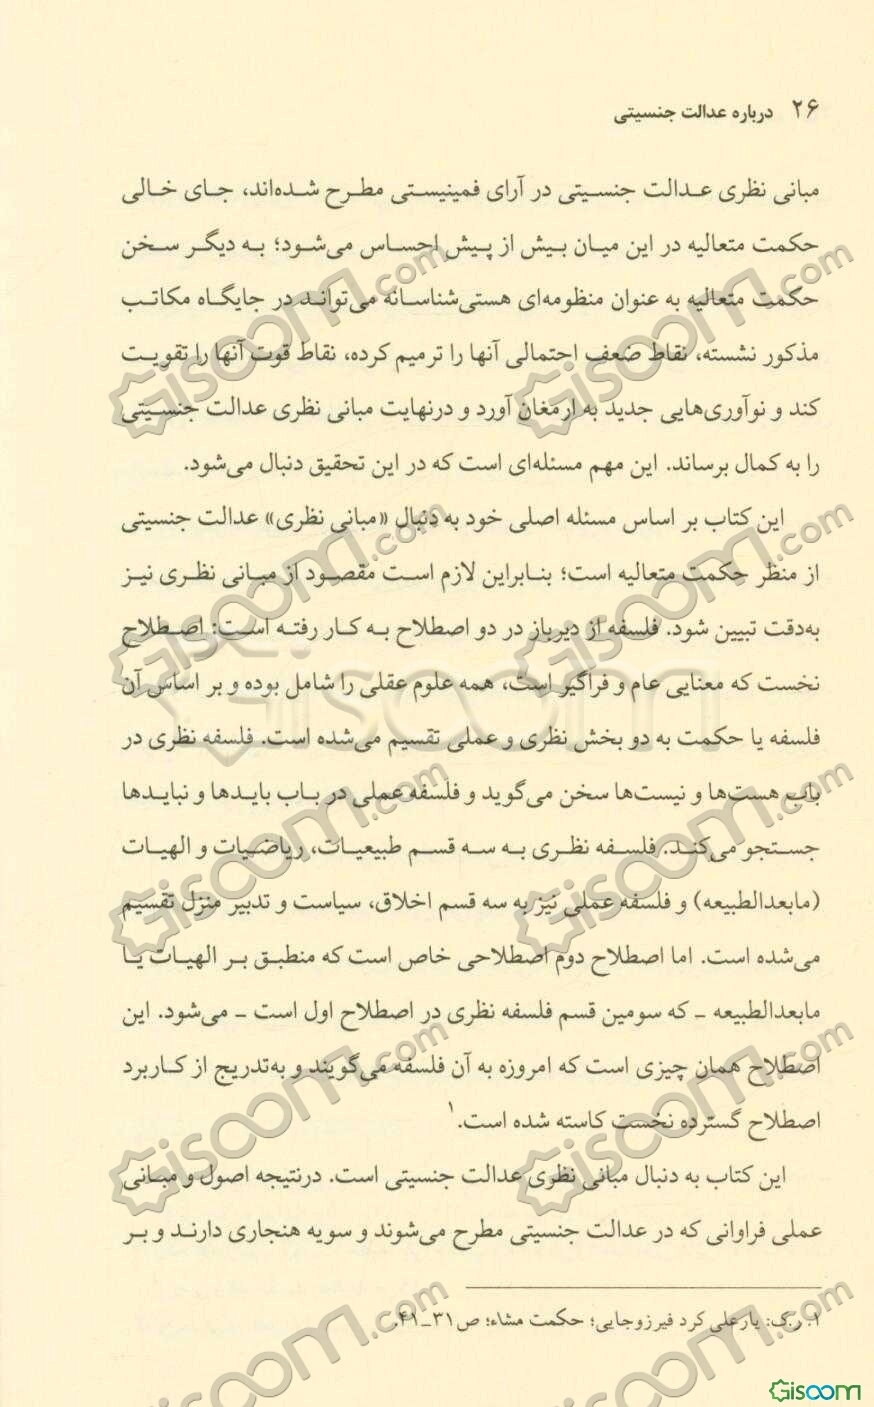 ۲۶ درباره عدالت جنسیتی
مبانی نظری عدالت جنسیتی در آرای فمینیستی مطرح شده‌اند، جای خالی
حکمت متعالیه در این میان بیش از پیش احساس می‌شود؛ به دیگر سخن
حکمت متعالیه به عنوان منظومه‌ای هستی‌شناسانه می‌تواند در جایگاه مکاتب
مذکور نشسته، نقاط ضعف احتمالی آنها را ترمیم کرده، نقاط قوت آنها را تقویت
کند و نوآوری‌هایی جدید به ارمغان آورد و درنهایت مبانی نظری عدالت جنسیتی
را به کمال برساند. این مهم مسئله‌ای است که در این تحقیق دنبال می‌شود.
این کتاب بر اساس مسئله اصلی خود به دنبال «مبانی نظری» عدالت جنسیتی
از منظر حکمت متعالیه است؛ بنابراین لازم است مقصود از مبانی نظری نیز
به‌دقت تبیین شود. فلسفه از دیرباز در دو اصطلاح به کار رفته است: اصطلاح
نخست که معنایی عام و فراگیر است، همه علوم عقلی را شامل بوده و بر اساس آن
فلسفه یا حکمت به دو بخش نظری و عملی تقسیم می‌شده است. فلسفه نظری در
باب هست‌ها و نیست‌ها سخن می‌گوید و فلسفه عملی در باب بایدها و نبایدها
جستجو می‌کند. فلسفه نظری به سه قسم طبیعیات، ریاضیات و الهیات
(مابعدالطبیعه) و فلسفه عملی نیز به سه قسم اخلاق، سیاست و تدبیر منزل تقسیم
می‌شده است. اما اصطلاح دوم اصطلاحی خاص است که منطبق بر الهیات یا
مابعدالطبیعه ـ که سومین قسم فلسفه نظری در اصطلاح اول است ـ می‌شود. این
اصطلاح همان چیزی است که امروزه به آن فلسفه می‌گویند و به‌تدریج از کاربرد
اصطلاح گسترده نخست کاسته شده است.۱
این کتاب به دنبال مبانی نظری عدالت جنسیتی است. درنتیجه اصول و مبانی
عملی فراوانی که در عدالت جنسیتی مطرح می‌شوند و سویه هنجاری دارند و بر
۱. ر.ک: یارعلی کرد فیرزوجایی؛ حکمت مشاء؛ ص۳۱ـ۴۱.
Gisoom